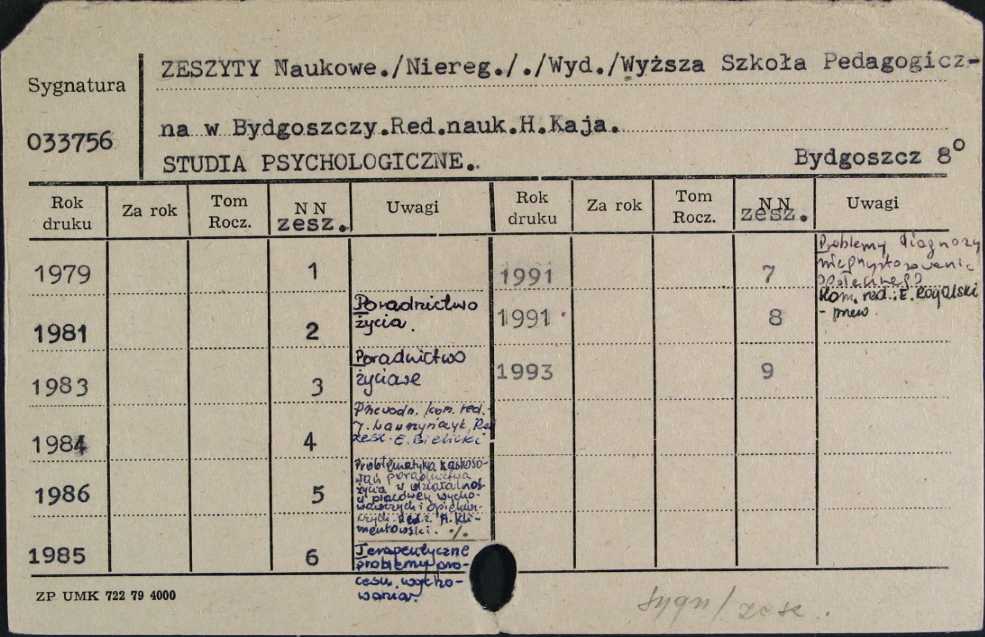 ZESZYTY Naukowe./Niereg./. /Wyd./Wyższa Szkoła Pedagogicz-
Sygnatura
na w Bydgoszczy.Red.nauk.H.Kaja.
033756
STUDIA PSYCHOLOGICZNE. Bydgoszcz 8°
Rok druku Za rok Tom Rocz. NN zesz. Uwagi Rok druku Za rok Tom Rocz. NN zesz. Uwagi
1979 1 1991 7 Problemy diagnozy
społecznego
Kom. red.: E. Rogalski
1981 2 Poradnictwo 1991 8
życia.
1983 3 Poradnictwo 1993 9
życiowe
1984 4 Przewodn. /kom. red.
E. Bielicki
1986 5 Problematyka
poradnictwa
życia w działalnoś
placówek wycho-
wawczych i opiekuń-
czych. Red. A. Kli-
mentowski. ./.
1985 6 Terapeutyczne
problemy pro-
cesu wycho-
wania.
ZP UMK 722 79 4000
sygn/